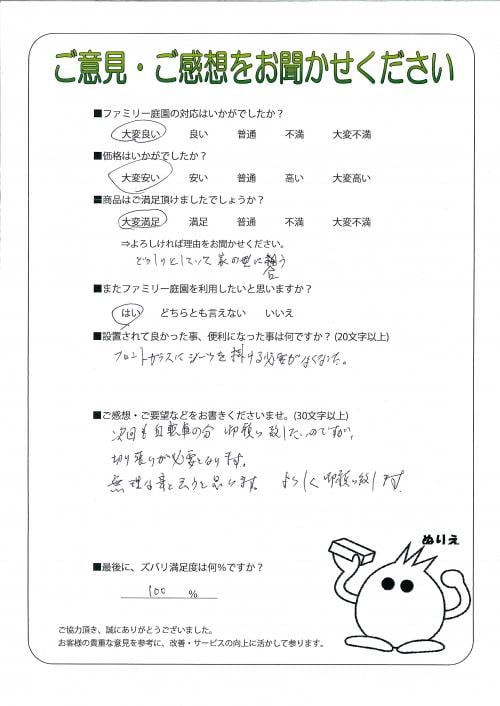 ご意見・ご感想をお聞かせください
■ファミリー庭園の対応はいかがでしたか？
大変良い 良い 普通 不満 大変不満
■価格はいかがでしたか？
大変安い 安い 普通 高い 大変高い
■商品はご満足頂けましたでしょうか？
大変満足 満足 普通 不満 大変不満
⇒よろしければ理由をお聞かせください。
どっしりとしていて 家の型に 合う
■またファミリー庭園を利用したいと思いますか？
はい どちらとも言えない いいえ
■設置されて良かった事、便利になった事は何ですか？(20文字以上)
フロントガラスにシーツを掛ける必要がなくなった。
■ご感想・ご要望などをお書きくださいませ。(30文字以上)
次回も自転車の分 御願い致したいのですが、
切り張りが必要となります。
無理な事と云うと思います。 よろしく御願い致します。
ぬりえ
■最後に、ズバリ満足度は何％ですか？
100 %
ご協力頂き、誠にありがとうございました。
お客様の貴重な意見を参考に、改善・サービスの向上に活かして参ります。